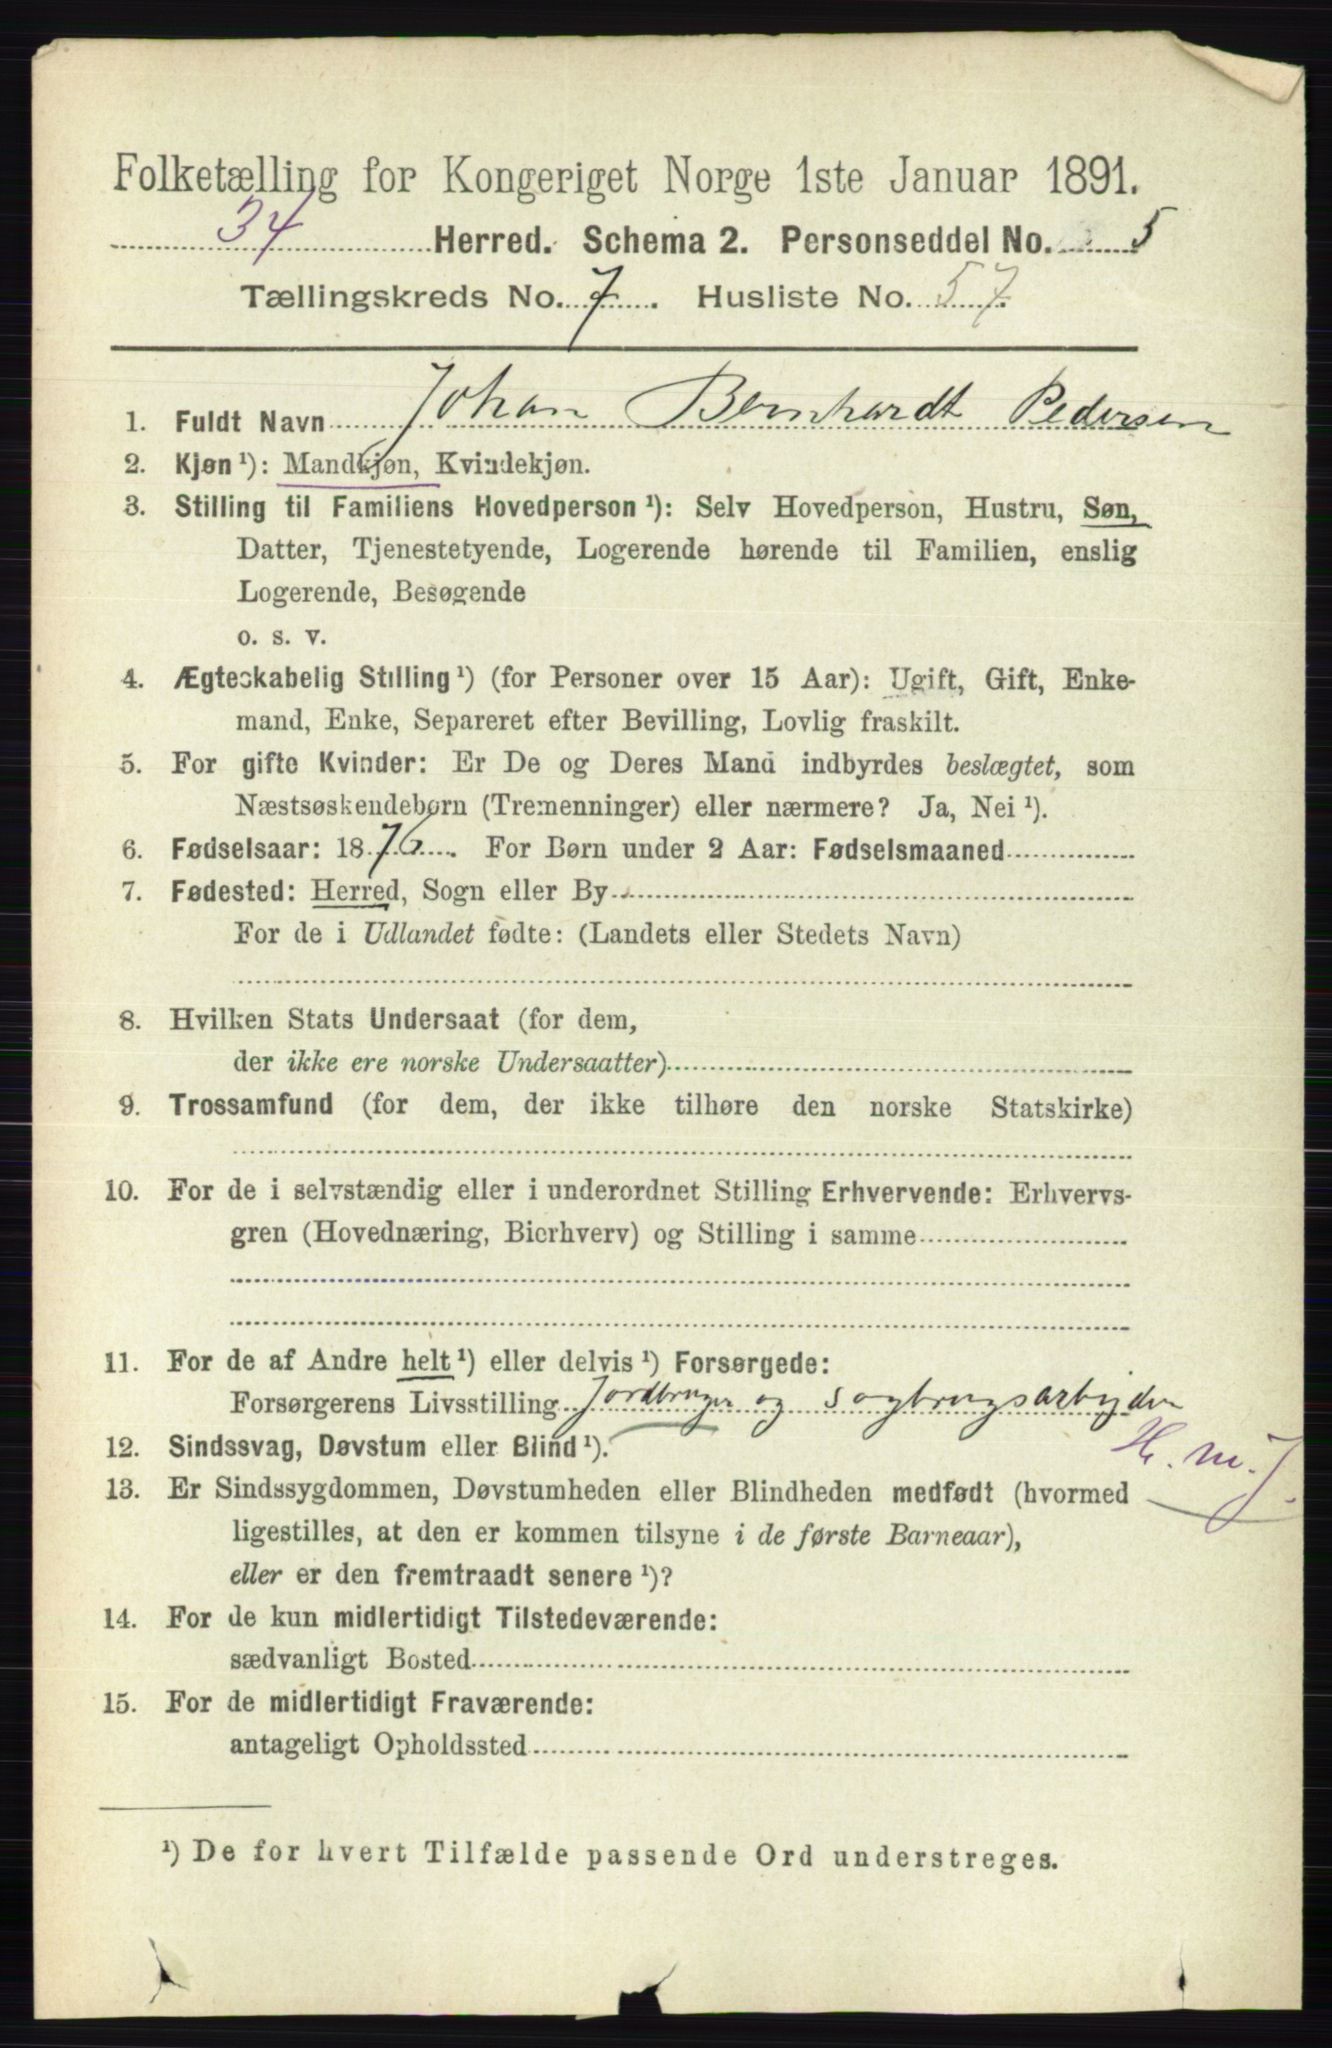 Folketælling for Kongeriget Norge 1ste Januar 1891.
34 Herred. Schema 2. Personseddel No. 5
Tællingskreds No. 7. Husliste No. 57.
1. Fuldt Navn Johan Bernhardt Pedersen
2. Kjøn ¹): Mandkjøn, Kvindekjøn.
3. Stilling til Familiens Hovedperson ¹): Selv Hovedperson, Hustru, Søn,
Datter, Tjenestetyende, Logerende hørende til Familien, enslig
Logerende, Besøgende
o. s. v.
4. Ægteskabelig Stilling ¹) (for Personer over 15 Aar): Ugift, Gift, Enke-
mand, Enke, Separeret efter Bevilling, Lovlig fraskilt.
5. For gifte Kvinder: Er De og Deres Mand indbyrdes beslægtet, som
Næstsøskendebørn (Tremenninger) eller nærmere? Ja, Nei ¹).
6. Fødselsaar: 1876. For Børn under 2 Aar: Fødselsmaaned
7. Fødested: Herred, Sogn eller By
For de i Udlandet fødte: (Landets eller Stedets Navn)
8. Hvilken Stats Undersaat (for dem,
der ikke ere norske Undersaatter)
9. Trossamfund (for dem, der ikke tilhøre den norske Statskirke)
10. For de i selvstændig eller i underordnet Stilling Erhvervende: Erhvervs-
gren (Hovednæring, Bierhverv) og Stilling i samme
11. For de af Andre helt ¹) eller delvis ¹) Forsørgede:
Forsørgerens Livsstilling Jordbruger og sagbrugsarbejder
12. Sindssvag, Døvstum eller Blind ¹). H. m. J.
13. Er Sindssygdommen, Døvstumheden eller Blindheden medfødt (hvormed
ligestilles, at den er kommen tilsyne i de første Barneaar),
eller er den fremtraadt senere ¹)?
14. For de kun midlertidigt Tilstedeværende:
sædvanligt Bosted
15. For de midlertidigt Fraværende:
antageligt Opholdssted
¹) De for hvert Tilfælde passende Ord understreges.